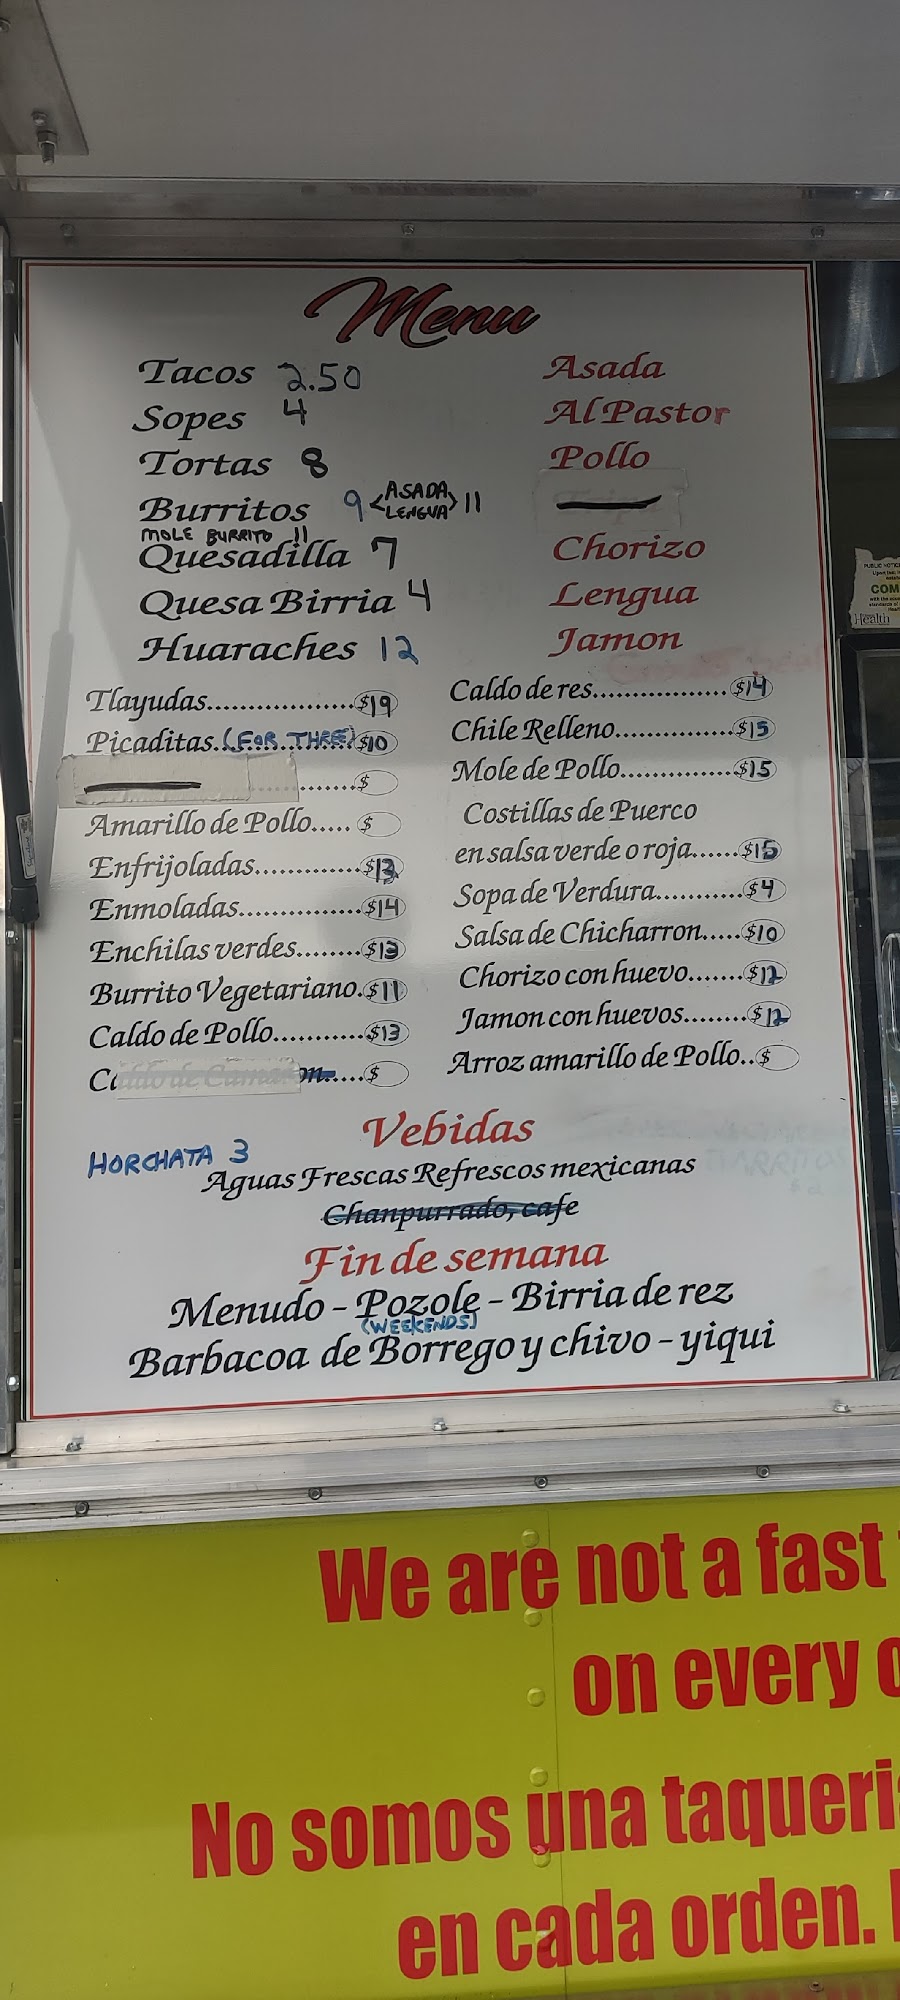 Menu
Tacos 2.50
Sopes 4
Tortas 8
Burritos 9 <ASADA LENGUA> 11
MOLE BURRITO 11
Quesadilla 7
Quesa Birria 4
Huaraches 12
Asada
Al Pastor
Pollo
Chorizo
Lengua
Jamon
Tlayudas..................$19
Picaditas.(FOR THREE)$10
........$
Amarillo de Pollo.....$
Enfrijoladas.............$13
Enmoladas...............$14
Enchilas verdes........$13
Burrito Vegetariano.$11
Caldo de Pollo...........$13
Caldo de Camaron.....$
Caldo de res.................$14
Chile Relleno...............$15
Mole de Pollo..............$15
Costillas de Puerco
en salsa verde o roja......$15
Sopa de Verdura...........$4
Salsa de Chicharron.....$10
Chorizo con huevo.......$12
Jamon con huevos........$12
Arroz amarillo de Pollo..$
Vebidas
HORCHATA 3
Aguas Frescas Refrescos mexicanas
Chanpurrado, cafe
Fin de semana
Menudo - Pozole - Birria de rez
(WEEKENDS)
Barbacoa de Borrego y chivo - yiqui
We are not a fast
on every
No somos una taqueri
en cada orden.
PUBLIC NOTICE
COM
Health